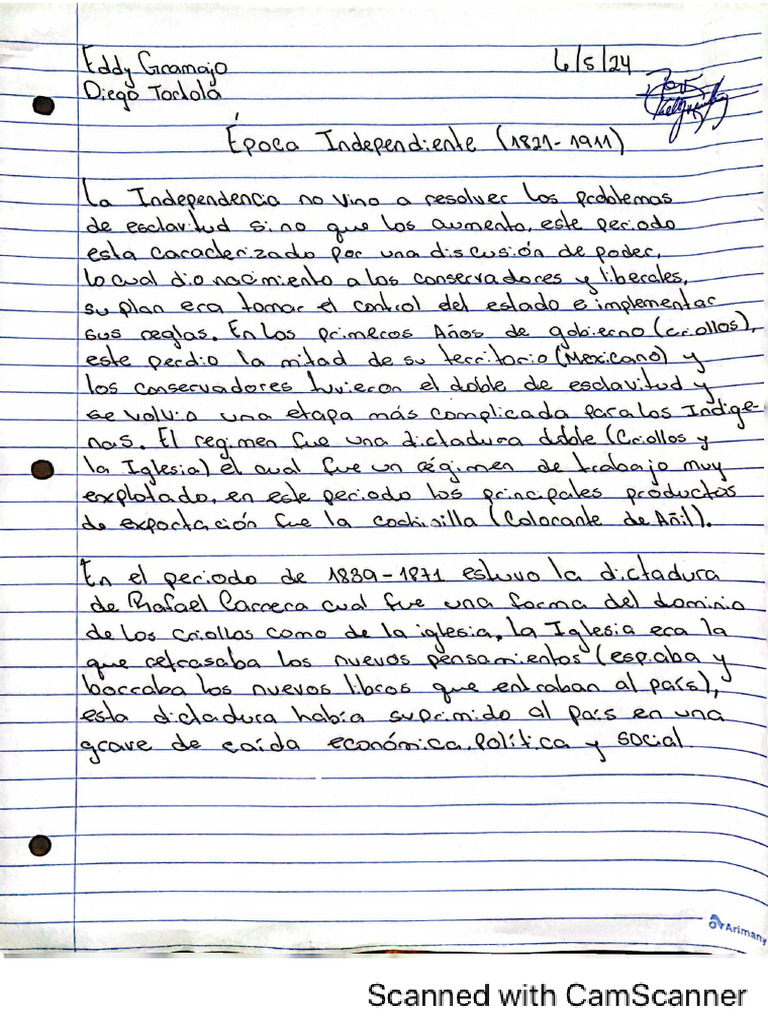 Eddy Gramajo
6/5/24
Diego Tortola
Época Independiente (1821-1911)
La Independencia no vino a resolver los problemas
de esclavitud si no que los aumento, este periodo
esta caracterizado por una discusión de poder,
lo cual dio nacimiento a los conservadores y liberales,
su plan era tomar el control del estado e implementar
sus reglas. En los primeros Años de gobierno (criollos),
este perdio la mitad de su territorio (Mexicano) y
los conservadores tuvieron el doble de esclavitud y
se volvio una etapa más complicada para los Indige-
nas. El regimen fue una dictadura doble (Criollos y
la Iglesia) el cual fue un régimen de trabajo muy
explotado, en este periodo los principales productos
de exportación fue la cochinilla (Colorante de Añil).
En el periodo de 1839-1871 estuvo la dictadura
de Rafael Carrera cual fue una forma del dominio
de los criollos como de la iglesia, la Iglesia era la
que retrasaba los nuevos pensamientos (espiaba y
borraba los nuevos libros que entraban al país),
esta dictadura había suprimido al país en una
grave de caída económica, política y social.
Arimany
Scanned with CamScanner